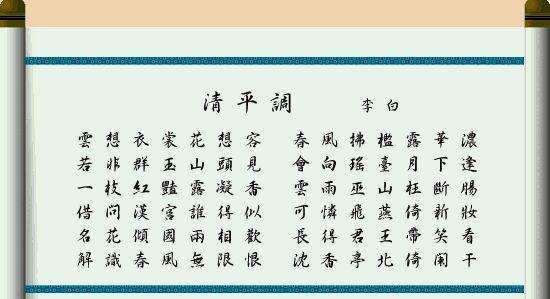 清平調 李白
雲想衣裳花想容 春風拂檻露華濃
若非群玉山頭見 會向瑤臺月下逢
一枝紅豔露凝香 雲雨巫山枉斷腸
借問漢宮誰得似 可憐飛燕倚新妝
名花傾國兩相歡 長得君王帶笑看
解識春風無限恨 沈香亭北倚闌干